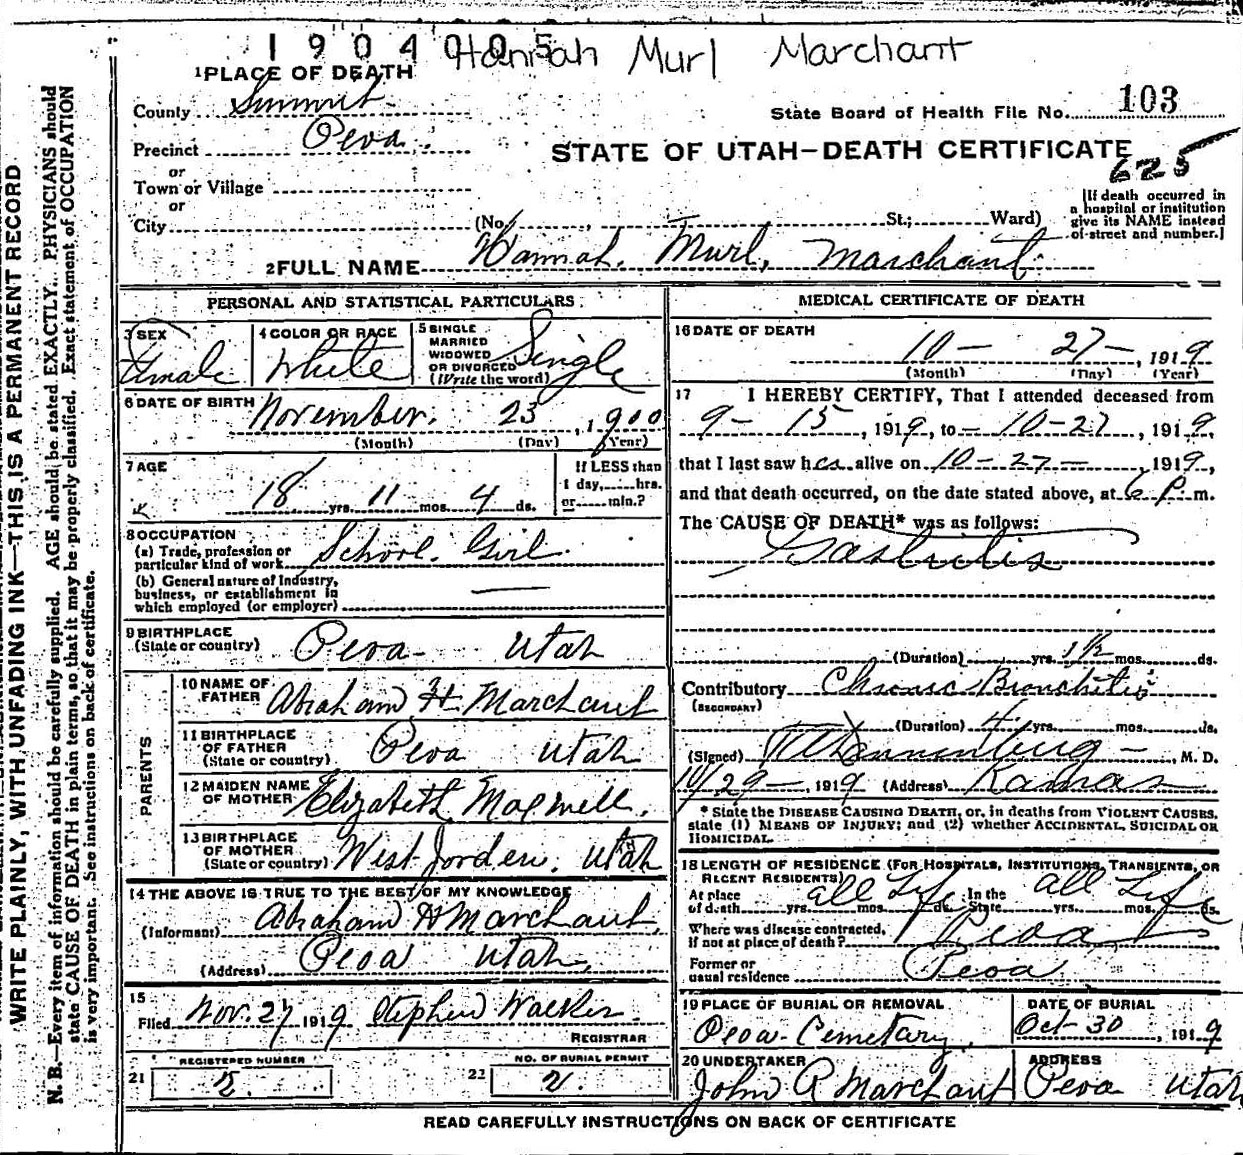 1904005 Hannah Murl Marchant
1 PLACE OF DEATH
County Summit
State Board of Health File No. 103
Precinct Peoa.
STATE OF UTAH—DEATH CERTIFICATE
625
or
Town or Village
or
City (No. , St.; Ward)
[If death occurred in a hospital or institution give its NAME instead of street and number.]
2 FULL NAME Hannah. Murl, Marchant.
PERSONAL AND STATISTICAL PARTICULARS
3 SEX Female
4 COLOR OR RACE White
5 SINGLE MARRIED WIDOWED OR DIVORCED (Write the word) Single
6 DATE OF BIRTH November. 23, 1900
(Month) (Day) (Year)
7 AGE 18 yrs. 11 mos. 4 ds.
If LESS than 1 day, hrs. or min.?
8 OCCUPATION
(a) Trade, profession or particular kind of work School Girl.
(b) General nature of Industry, business, or establishment in which employed (or employer) —
9 BIRTHPLACE (State or country) Peoa Utah
PARENTS
10 NAME OF FATHER Abraham H Marchant
11 BIRTHPLACE OF FATHER (State or country) Peoa Utah
12 MAIDEN NAME OF MOTHER Elizabeth Maxwell.
13 BIRTHPLACE OF MOTHER (State or country) West Jorden. Utah
14 THE ABOVE IS TRUE TO THE BEST OF MY KNOWLEDGE
(Informant) Abraham H Marchant,
(Address) Peoa Utah,
15 Filed Nov. 27 1919 Stephen Walker.
REGISTRAR
REGISTERED NUMBER
21
NO. OF BURIAL PERMIT
22 2.
MEDICAL CERTIFICATE OF DEATH
16 DATE OF DEATH
10 — 27 —, 1919
(Month) (Day) (Year)
17 I HEREBY CERTIFY, That I attended deceased from
9 - 15, 1919, to - 10-27, 1919,
that I last saw her alive on 10-27-, 1919,
and that death occurred, on the date stated above, at 6 P. m.
The CAUSE OF DEATH* was as follows:
Gastritis
(Duration) yrs. 1½ mos. ds.
Contributory Chronic Bronchitis
(SECONDARY)
(Duration) 4 yrs. mos. ds.
(Signed) , M. D.
10/29—, 1919 (Address) Kamas
* State the DISEASE CAUSING DEATH, or, in deaths from VIOLENT CAUSES, state (1) MEANS OF INJURY; and (2) whether ACCIDENTAL, SUICIDAL OR HOMICIDAL.
18 LENGTH OF RESIDENCE (FOR HOSPITALS, INSTITUTIONS, TRANSIENTS, OR RECENT RESIDENTS)
At place of death all Life yrs. mos. ds. In the State all Life yrs. mos. ds.
Where was disease contracted, if not at place of death? Peoa
Former or usual residence Peoa
19 PLACE OF BURIAL OR REMOVAL Peoa Cemetary.
DATE OF BURIAL Oct-30, 1919
20 UNDERTAKER John A Marchant
ADDRESS Peoa Utah
READ CAREFULLY INSTRUCTIONS ON BACK OF CERTIFICATE
WRITE PLAINLY, WITH UNFADING INK—THIS IS A PERMANENT RECORD
N. B.—Every item of information should be carefully supplied. AGE should be stated EXACTLY. PHYSICIANS should
state CAUSE OF DEATH in plain terms, so that it may be properly classified. Exact statement of OCCUPATION
is very important. See instructions on back of certificate.